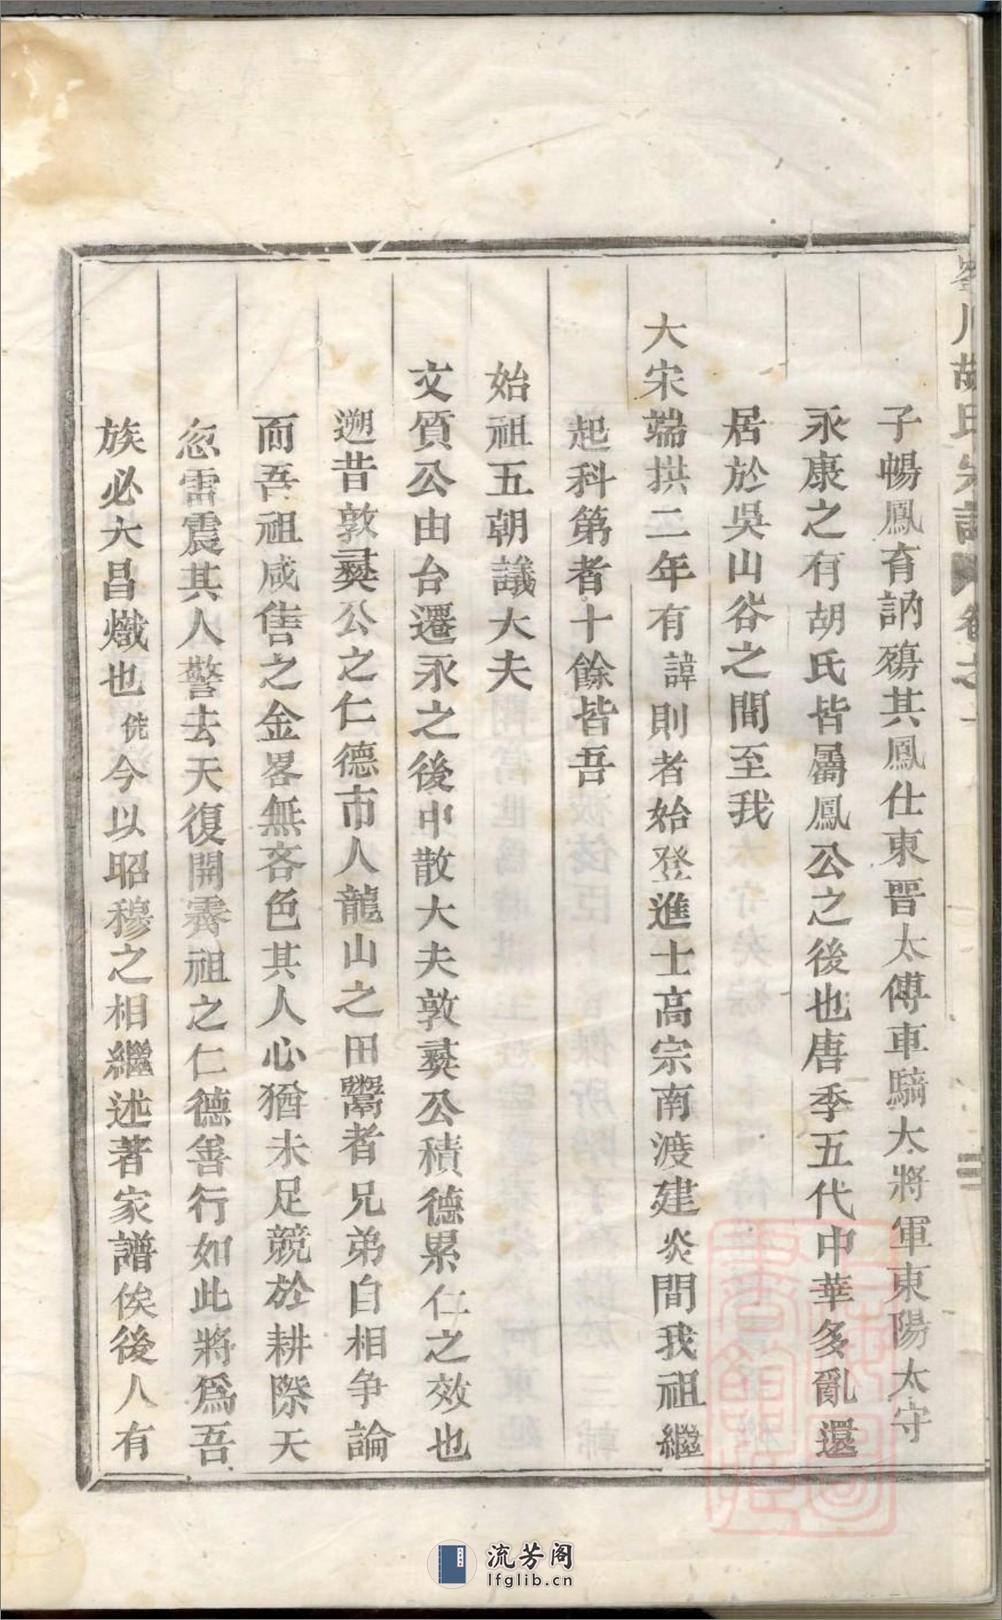 川胡氏宗譜 卷之一
子暢鳳有訥殤其鳳仕東晋太傅車騎大將軍東陽太守
永康之有胡氏皆屬鳳公之後也唐季五代中華多亂還
居於吳山谷之間至我
大宋端拱二年有諱則者始登進士高宗南渡建炎間我祖繼
起科第者十餘皆吾
始祖五朝議大夫
文質公由台遷永之後中散大夫敦彝公積德累仁之效也
遡昔敦彝公之仁德市人龍山之田鬻者兄弟自相争論
而吾祖咸售之金畧無吝色其人心猶未足競於耕際天
忽雷震其人警去天復開霽祖之仁德善行如此將爲吾
族必大昌熾也侂今以昭穆之相繼述著家譜俟後人有
流芳阁
lfglib.cn